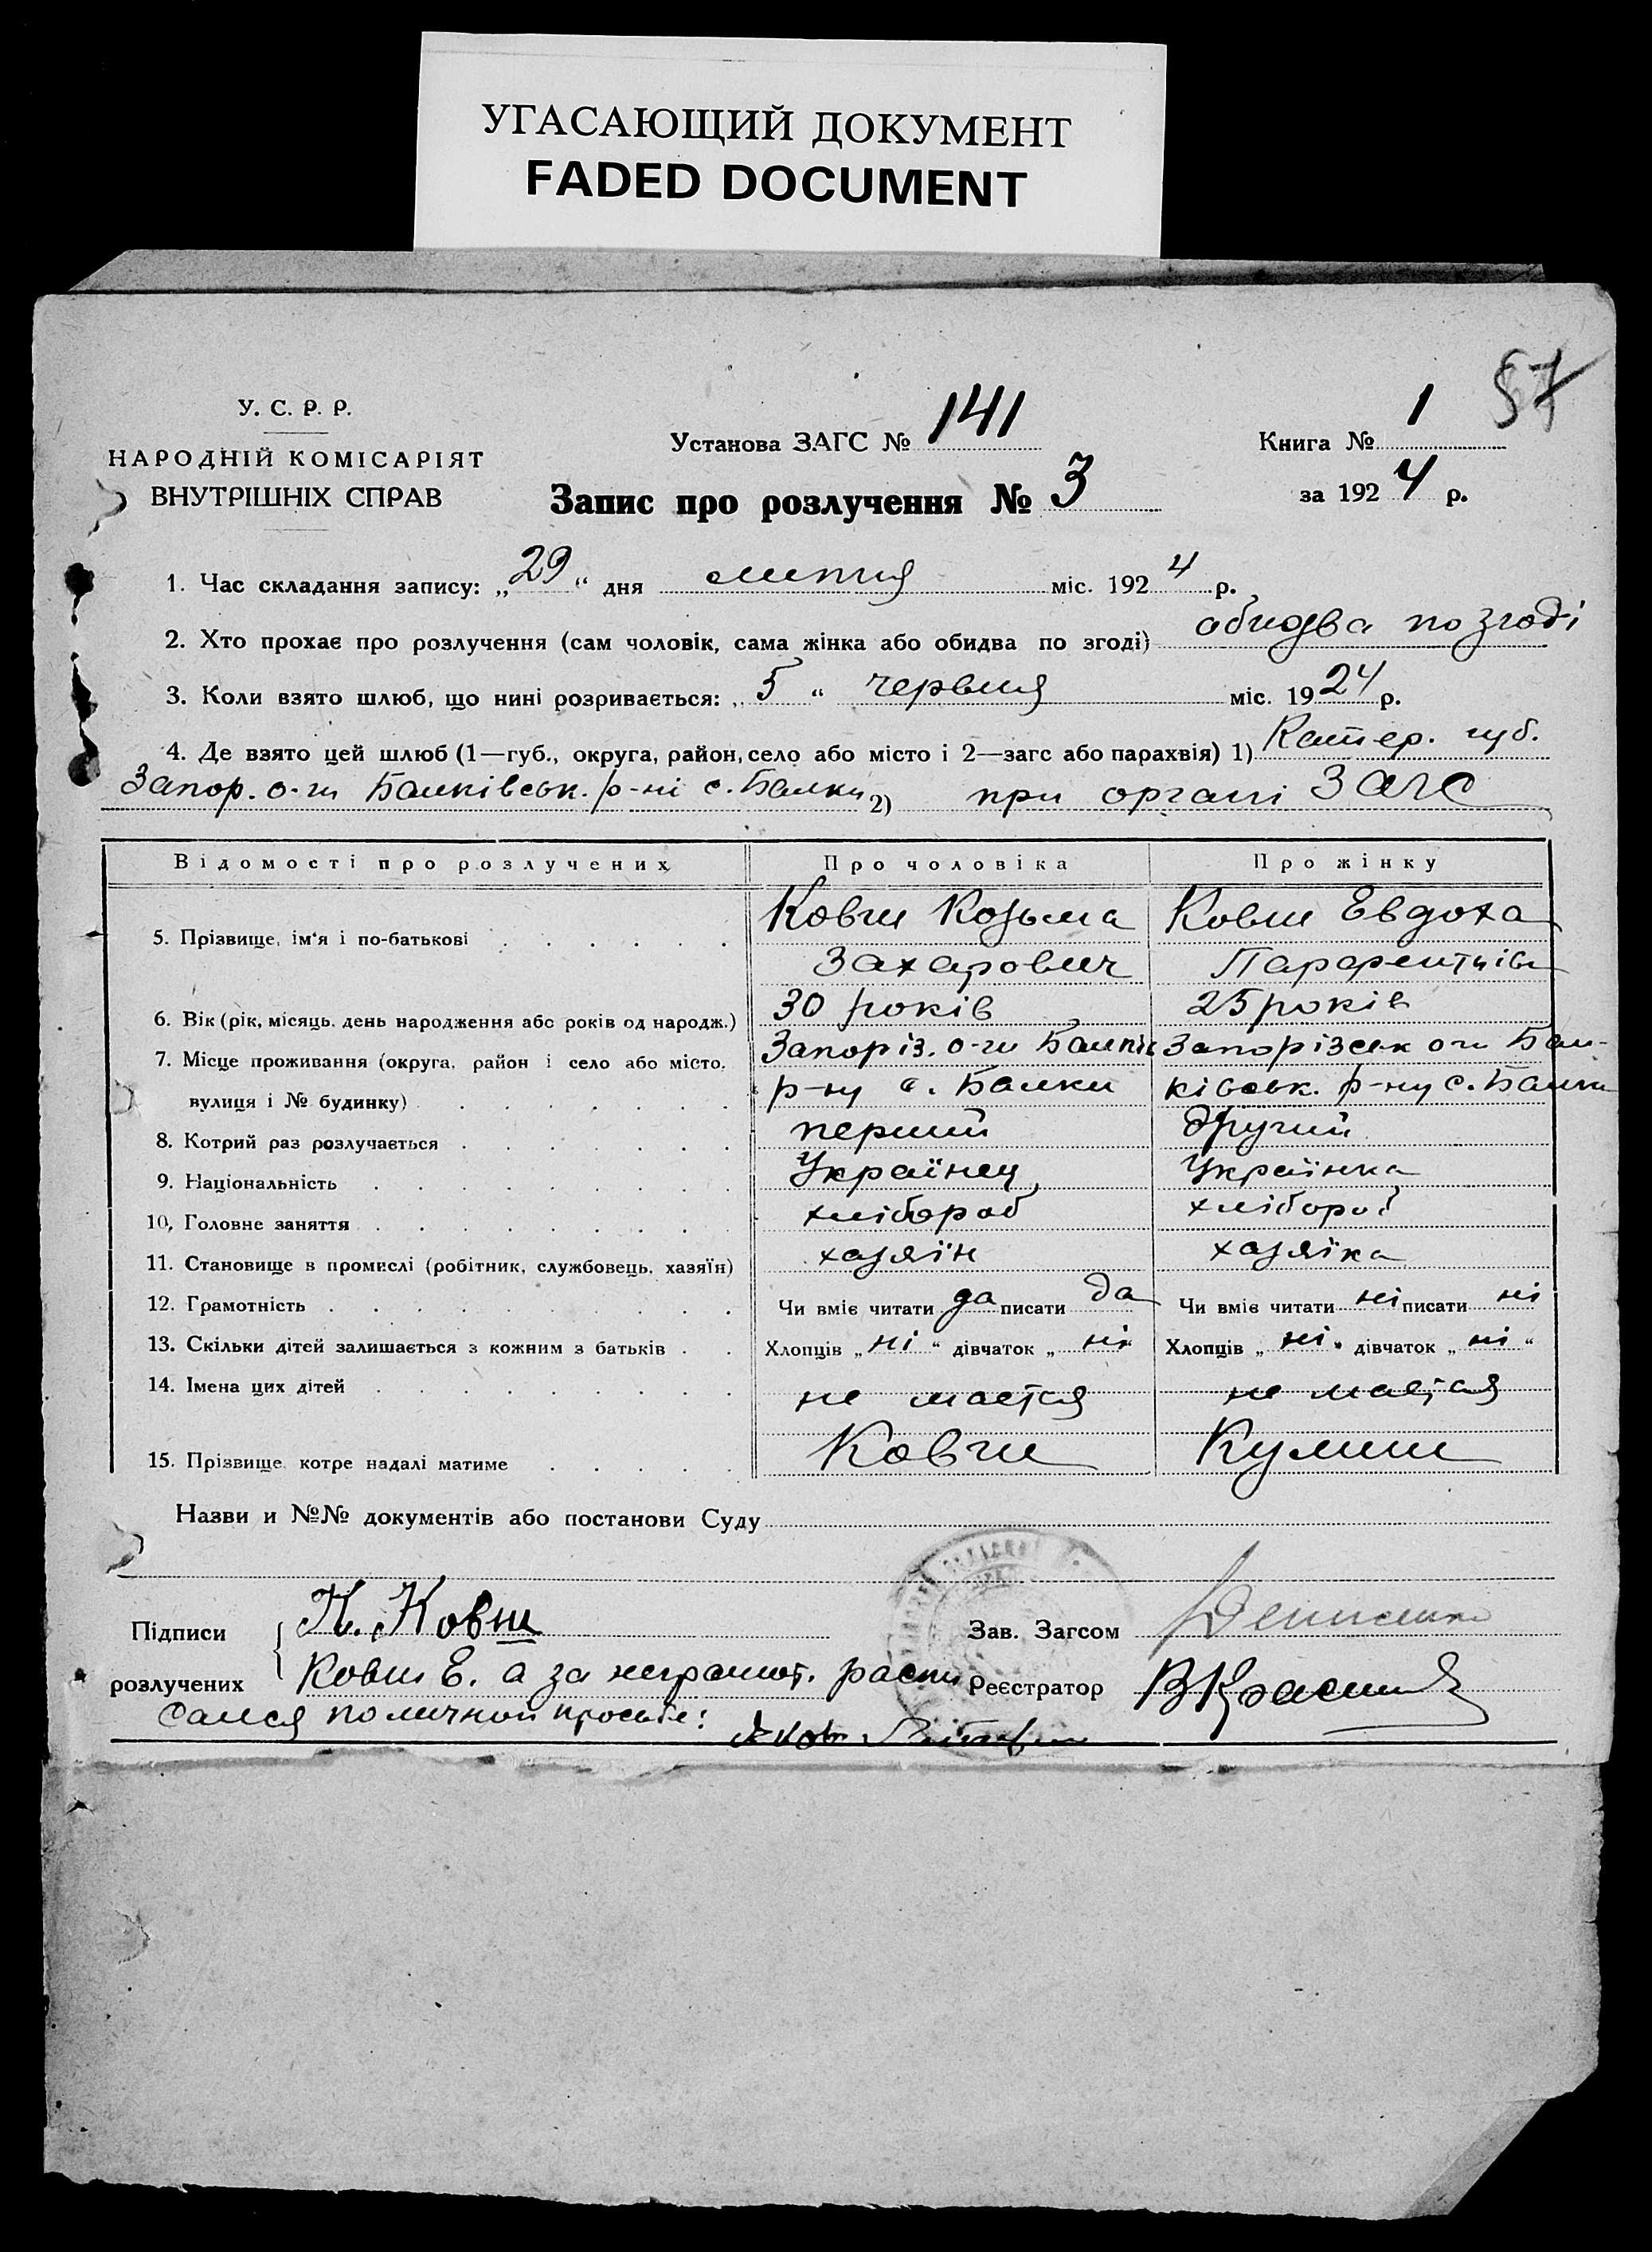 УГАСАЮЩИЙ ДОКУМЕНТ
FADED DOCUMENT
57
У. С. Р. Р.
НАРОДНІЙ КОМІСАРІЯТ
ВНУТРІШНІХ СПРАВ
Установа ЗАГС № 141
Книга № 1
Запис про розлучення № 3
за 1924 р.
1. Час складання запису: „29“ дня липня міс. 1924 р.
2. Хто прохає про розлучення (сам чоловік, сама жінка або обидва по згоді) обидва по згоді
3. Коли взято шлюб, що нині розривається: „5“ червня міс. 1924 р.
4. Де взято цей шлюб (1—губ., округа, район, село або місто і 2—загс або парахвія) 1) Катер. губ.
Запор. о-ги Балківськ. р-ні с. Балки 2) при органі ЗАГС
Відомості про розлучених Про чоловіка Про жінку
5. Прізвище, ім'я і по-батькові Ковш Козьма Ковш Евдоха
Захарович
6. Вік (рік, місяць, день народження або років од народж.) 30 років 25 років
7. Місце проживання (округа, район і село або місто, Запоріз. о-ги Запорізськ о-ги Бал-
вулиця і № будинку) р-ну с. Балки ківськ. р-ну с. Балки
8. Котрий раз розлучається перший другий
9. Національність Українец Українка
10. Головне заняття хлібороб хлібороб
11. Становище в промислі (робітник, службовець, хазяїн) хазяїн хазяїка
12. Грамотність Чи вміє читати да писати да Чи вміє читати ні писати ні
13. Скільки дітей залишається з кожним з батьків Хлопців „ні“ дівчаток „ні“ Хлопців „ні“ дівчаток „ні“
14. Імена цих дітей не мается не мается
15. Прізвище котре надалі матиме Ковш Кулиш
Назви и №№ документів або постанови Суду
Підписи К. Ковш Зав. Загсом
розлучених Ковш Е. а за неграмот. распи Реєстратор
сался по личной просьбе: